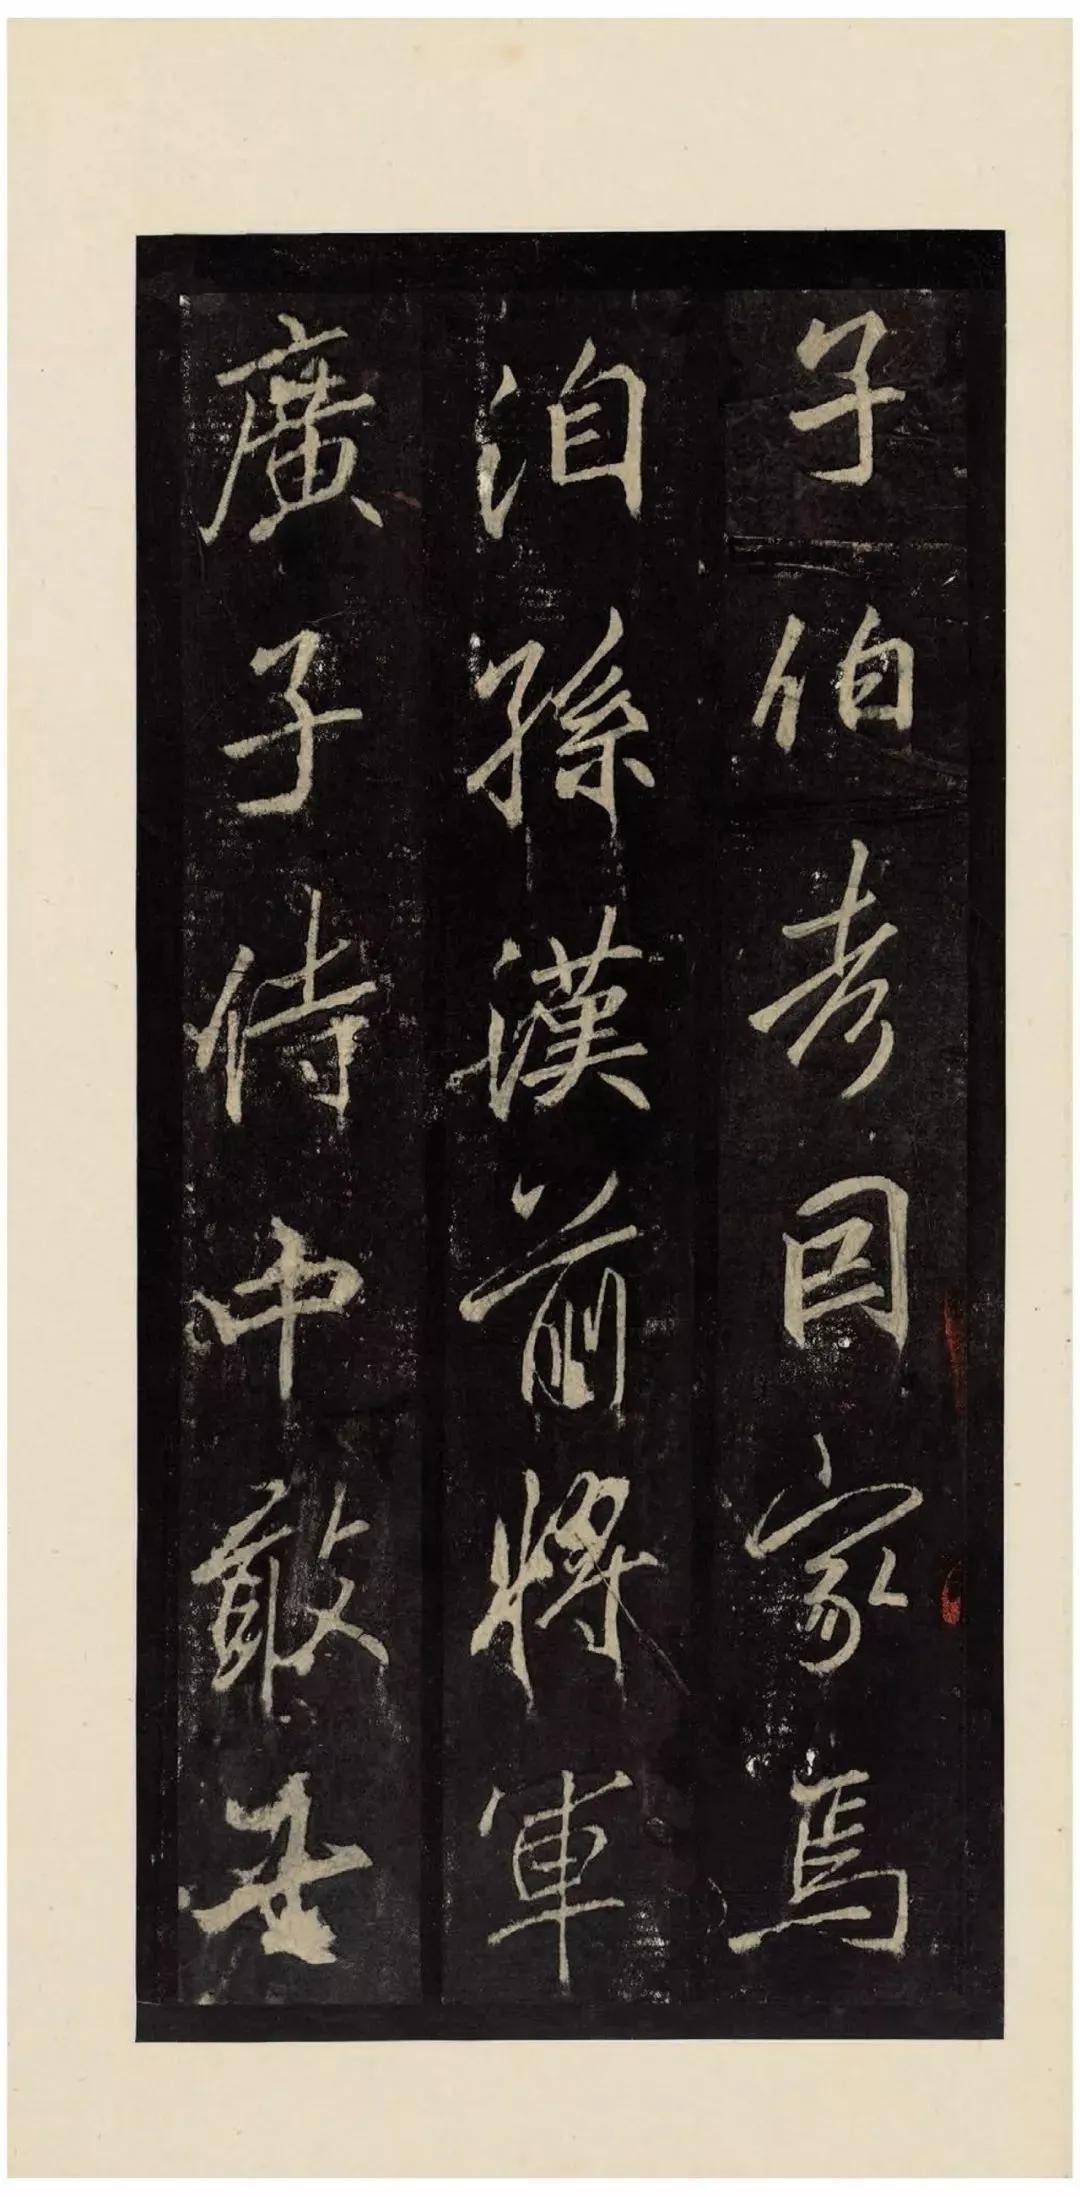 子伯考因家焉
洎孫漢前將軍
廣子侍中敢